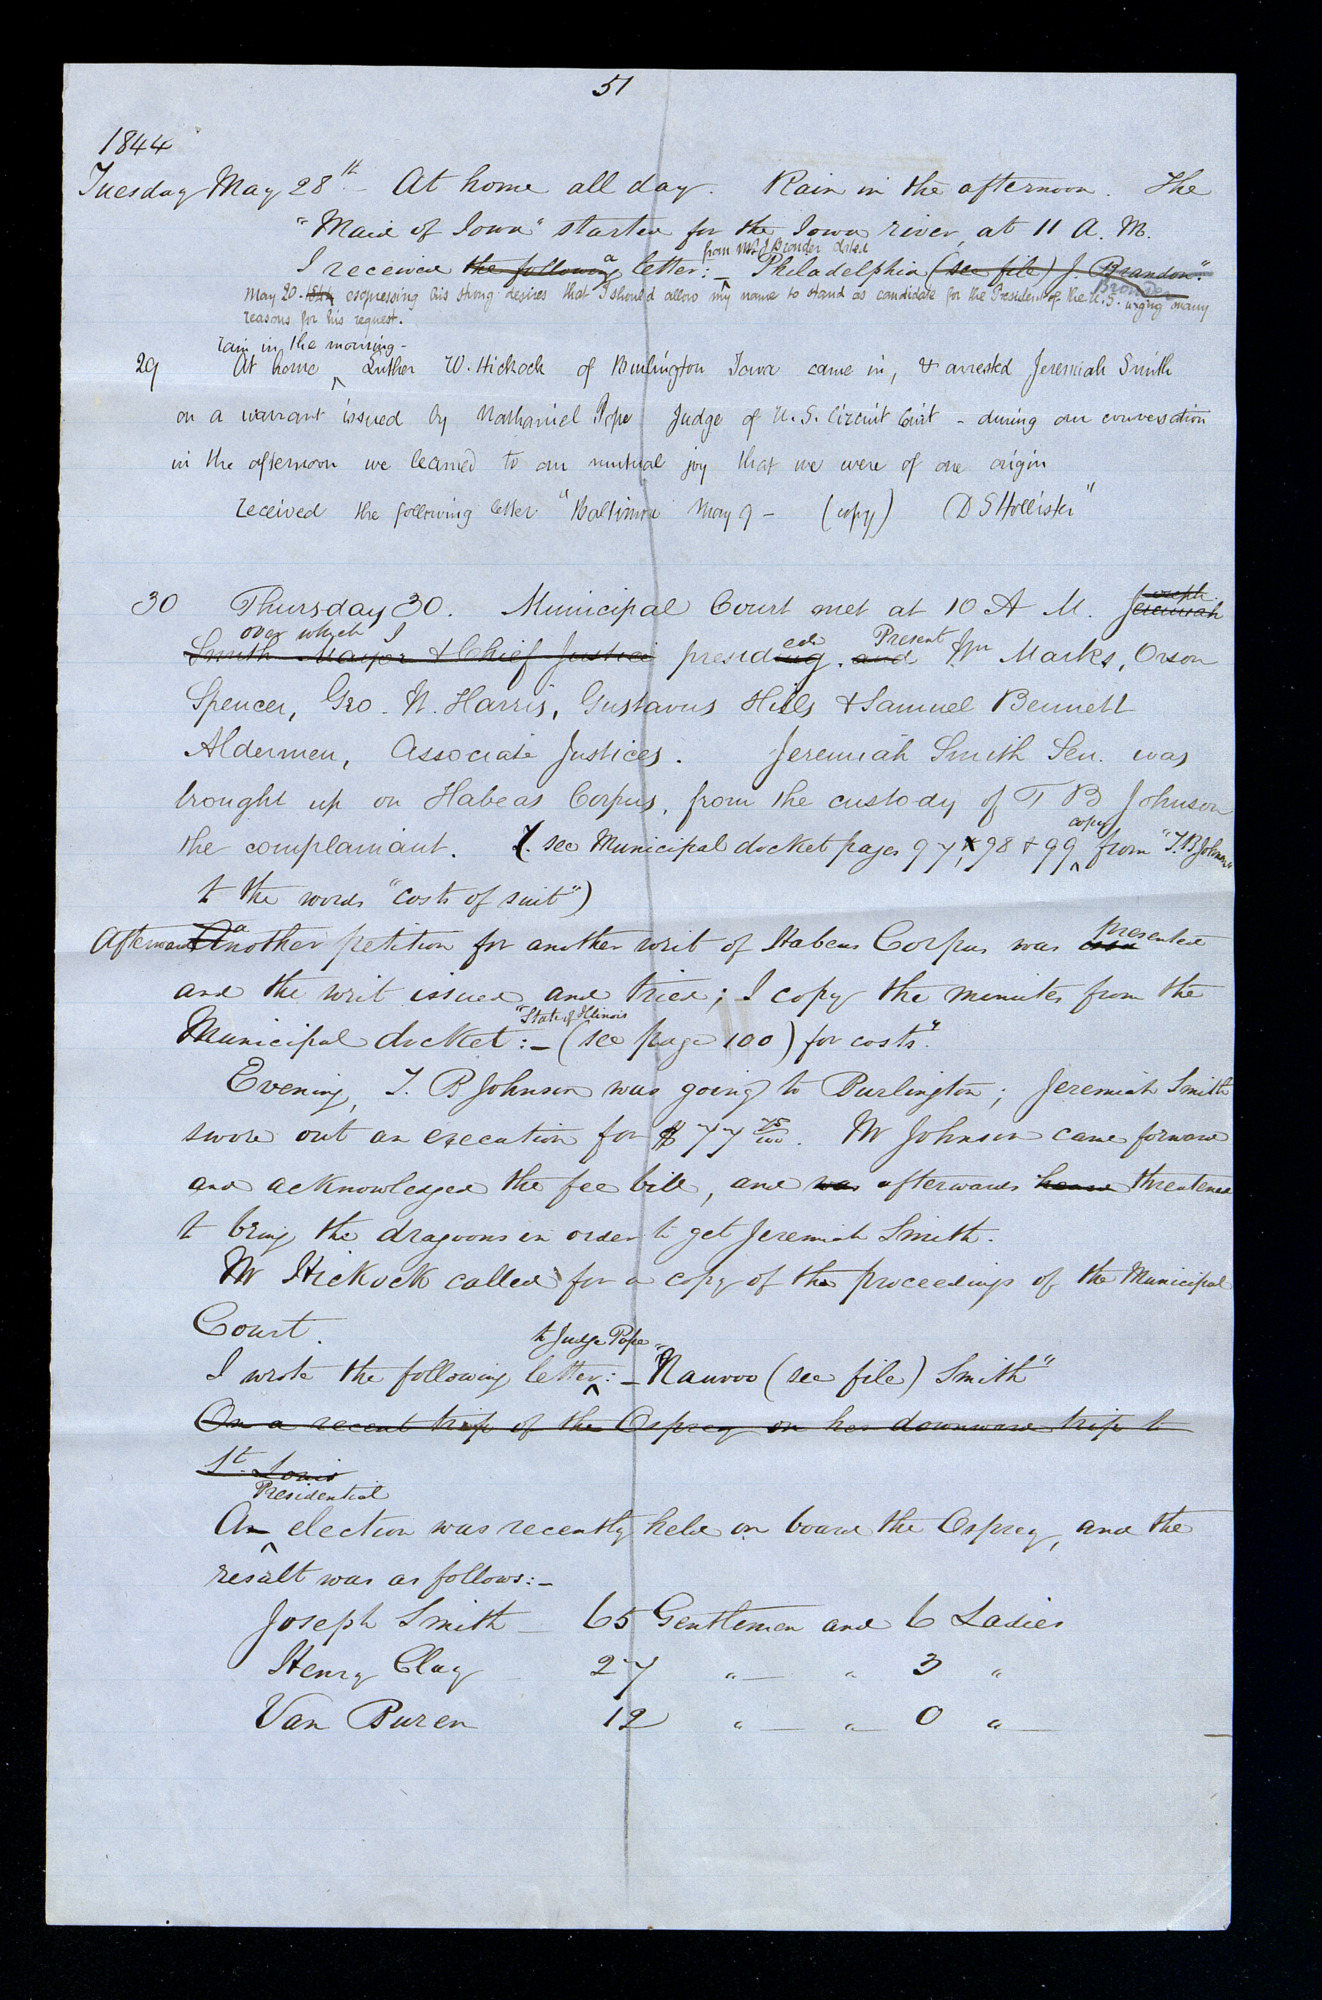 51
1844
Tuesday May 28th - At home all day. Rain in the afternoon. The
"Maid of Iowa" started for the Iowa river, at 11 A. M.
from Mr J Bronder dated
I received the following a letter:- Philadelphia (see file) J. Brandon".
Bronder
May 20. 1844 expressing his strong desires that I should allow my name to stand as candidate for the President of the U.S. urging many
reasons for his request.
rain in the morning -
29 At home Luther W. Hickock of Burlington Iowa came in, & arrested Jeremiah Smith
on a warrant issued by Nathaniel Pope Judge of U.S. Circuit Court - during our conversation
in the afternoon we learned to our mutual joy that we were of one origin
received the following letter "Baltimore May 9 - (copy) D S Hollister"
30 Thursday 30. Municipal Court met at 10 A M. Joseph Jeremiah
over which I
Smith Mayor & Chief Justice presiding ed. and Present Wm Marks, Orson
Spencer, Geo. W. Harris, Gustavus Hills & Samuel Bennett
Aldermen, Associate Justices. Jeremiah Smith Sen. was
brought up on Habeas Corpus, from the custody of T B Johnson
copy
the complainant. (see Municipal docket pages 97, 98 & 99 from "T. B Johnson"
to the words "costs of suit")
Afterward Another a petition for another writ of Habeas Corpus was presented
and the writ issued and tried; I copy the minutes from the
"State of Illinois
Municipal docket:- (see page 100) for costs".
Evening, T. B Johnson was going to Burlington; Jeremiah Smith
swore out an execution for $77 75/100. Mr Johnson came forward
and acknowledged the fee bill, and was afterwards heard threatened
to bring the dragoons in order to get Jeremiah Smith.
Mr Hickock called for a copy of the proceedings of the Municipal
Court.
to Judge Pope
I wrote the following letter:- "Nauvoo (see file) Smith"
On a recent trip of the Osprey on her downward trip to
St. Louis
Presidential
An election was recently held on board the Osprey, and the
result was as follows:-
Joseph Smith - 65 Gentlemen and 6 Ladies
Henry Clay 27 " - " 3 "
Van Buren 12 " - " - 0 " -